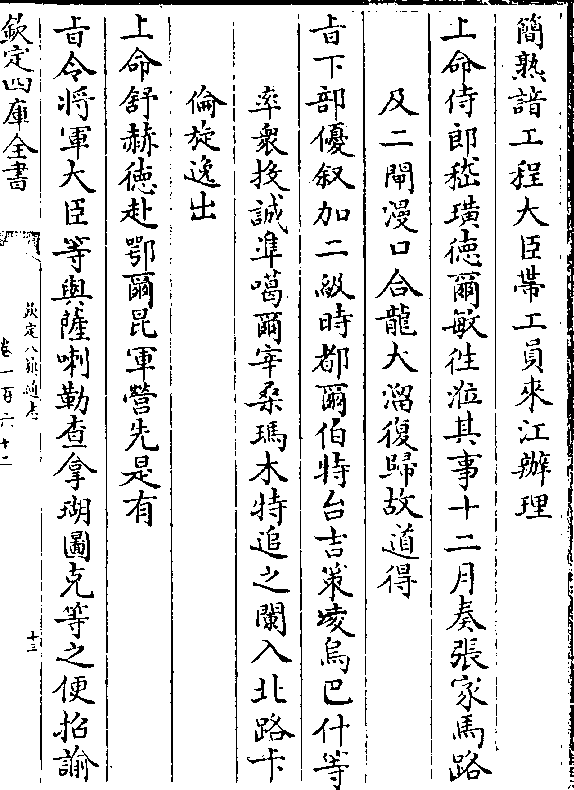 簡熟諳工程大臣帶工員來江辦理
上命侍郎嵇璜德爾敏往涖其事十二月奏張家馬路
及二閘漫口合龍大溜復歸故道得
旨下部優叙加二級時都爾伯特台吉策凌烏巴什等
率衆投誠準噶爾宰桑瑪木特追之闌入北路卡
倫旋逸出
上命舒赫徳赴鄂爾昆軍營先是有
旨令將軍大臣等與薩喇勒查拿瑚圖克等之便招諭
欽定四庫全書
欽定八旗通志
卷一百六十二
十三